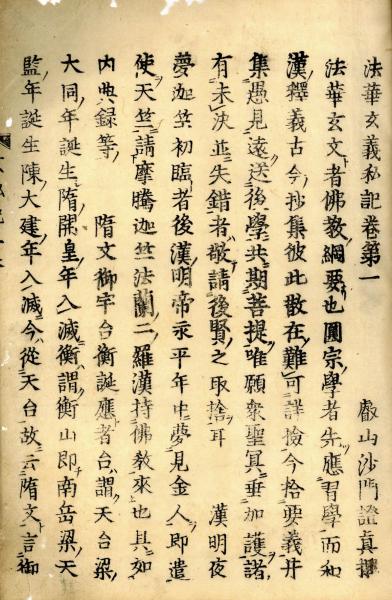 法華玄義私記卷第一　叡山沙門證真撰
法華玄文者佛教綱要也圓宗學者先應習學而和
漢釋義古今抄集彼此散在難可詳撿今拾要義并
集愚見遠送後學共期菩提唯願衆聖冥垂加護諸
有未決並失錯者敬請後賢之取捨耳　漢明夜
夢迦竺初臨者後漢明帝永平年中夢見金人即遣
使天竺請摩騰迦竺法蘭二羅漢持佛教來也具如
内典録等　隋文御宇台衡誕應者台謂天台梁
大同年誕生隋開皇年入滅衡謂衡山即南岳梁天
監年誕生陳大建年入滅今從天台故云隋文言御